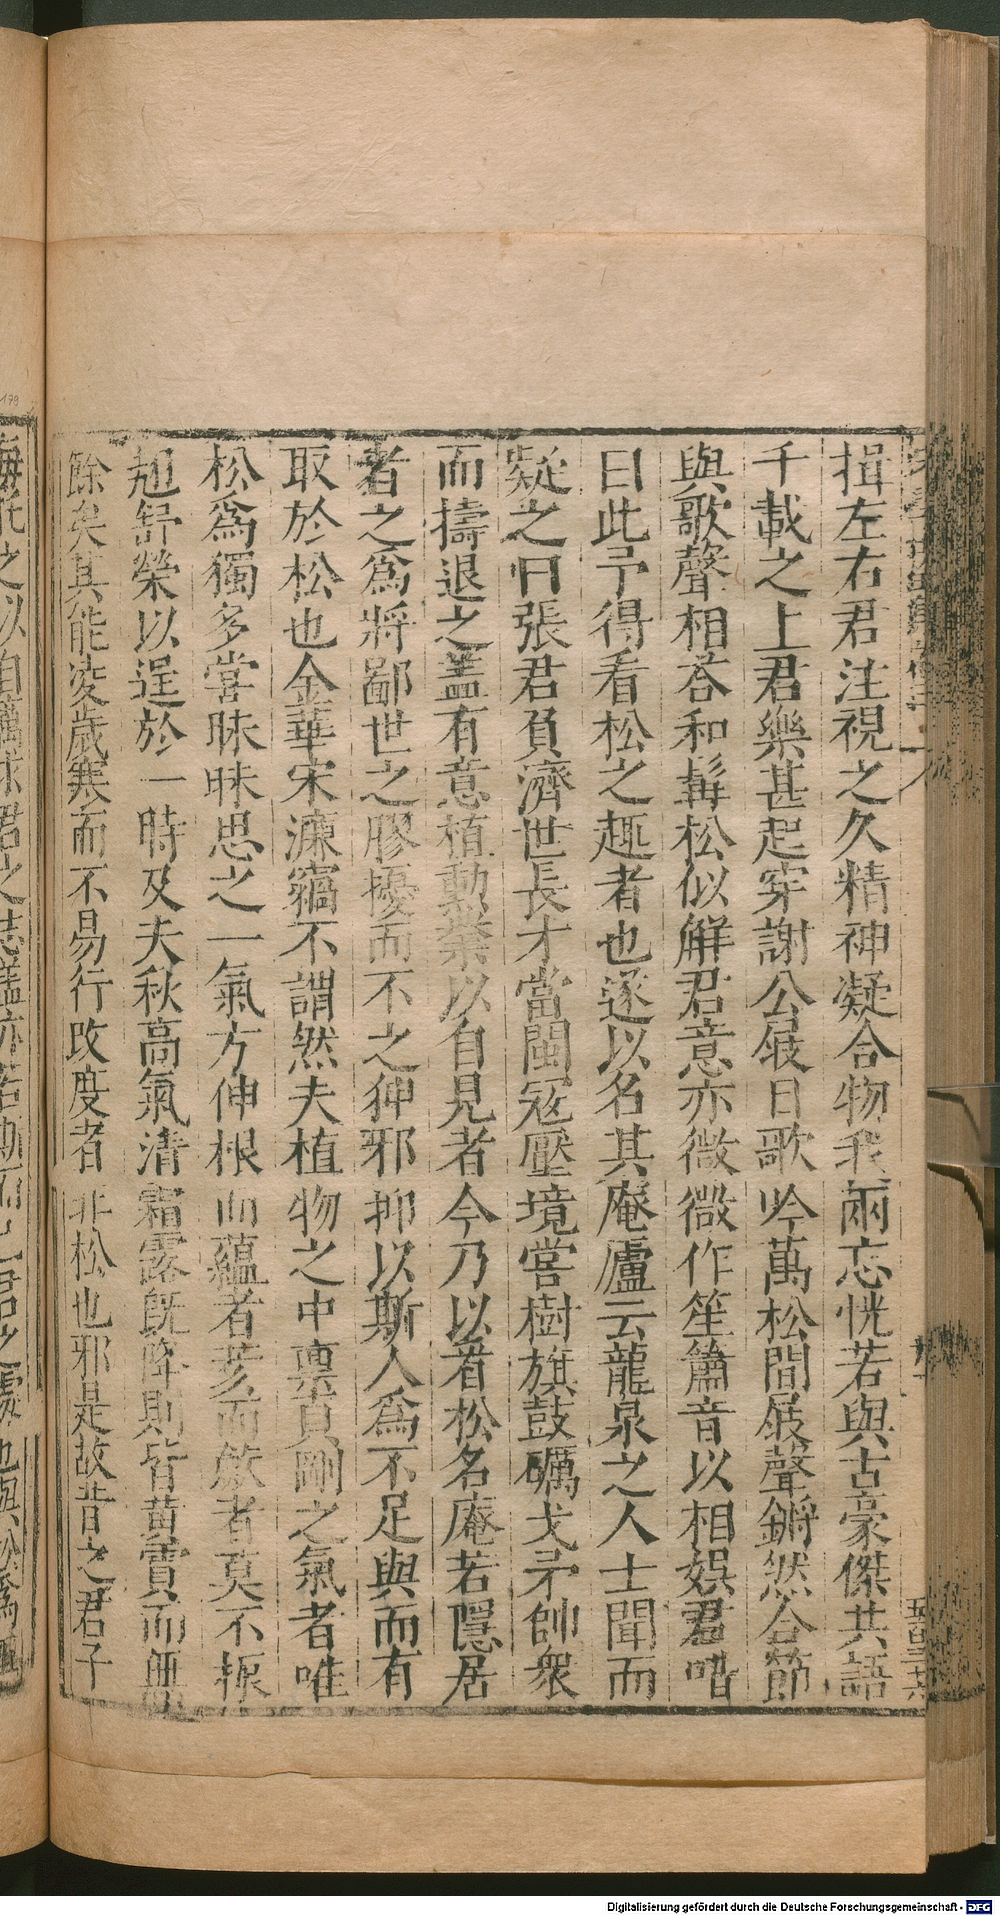 揖左右君注視之久精神凝合物我兩忘恍若與古豪傑共語
千載之上君樂甚起穿謝公屐日歌吟萬松間屐聲鏘然合節
與歌聲相荅和髯松似解君意亦微微作笙簫音以相娛君喈
曰此予得看松之趣者也遂以名其庵廬云龍泉之人士聞而
疑之曰張君負濟世長才當閩寇壓境嘗樹旗鼓礪戈矛帥衆
而擣退之盖有意植勳業以自見者今乃以看松名庵若隱居
者之爲將鄙世之膠擾而不之狎邪抑以斯人爲不足與而有
取於松也金華宋濂竊不謂然夫植物之中稟貞剛之氣者唯
松爲獨多嘗昧昧思之一氣方伸根而蘊者荄而歛者莫不振
翹舒榮以逞於一時及夫秋高氣清霜露既降則皆黄實而無
餘矣其能凌歲寒而不易行改度者非松也邪是故昔之君子
之以自礪求君之志盖亦若斯而已君之處也與松爲
179
Digitalisierung gefördert durch die Deutsche Forschungsgemeinschaft - DFG